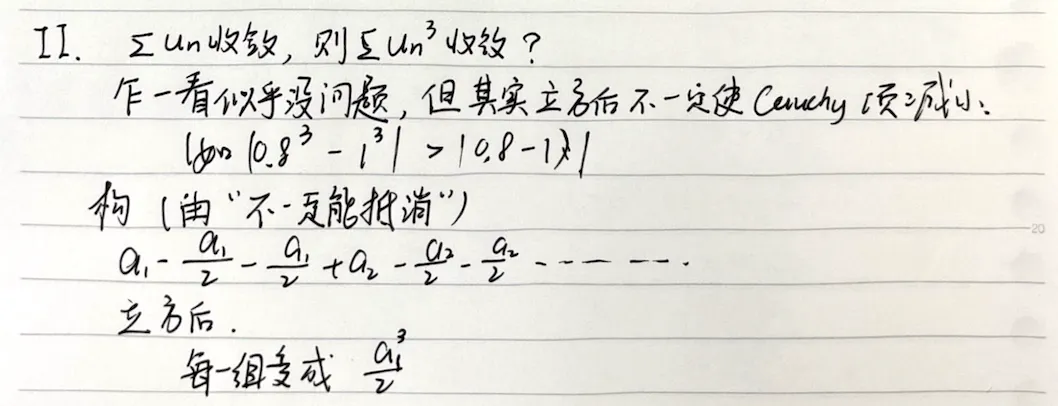 II. Σun收敛,则Σun³收敛?
乍一看似乎没问题,但其实立方后不一定使Cauchy项减小:
(如 |0.8³ - 1³| > |0.8 - 1|)
构(由“不一定能抵消”)
a₁ - a₁/2 - a₁/2 + a₂ - a₂/2 - a₂/2 ------.
立方后.
每一组变成 a₁³/2
20